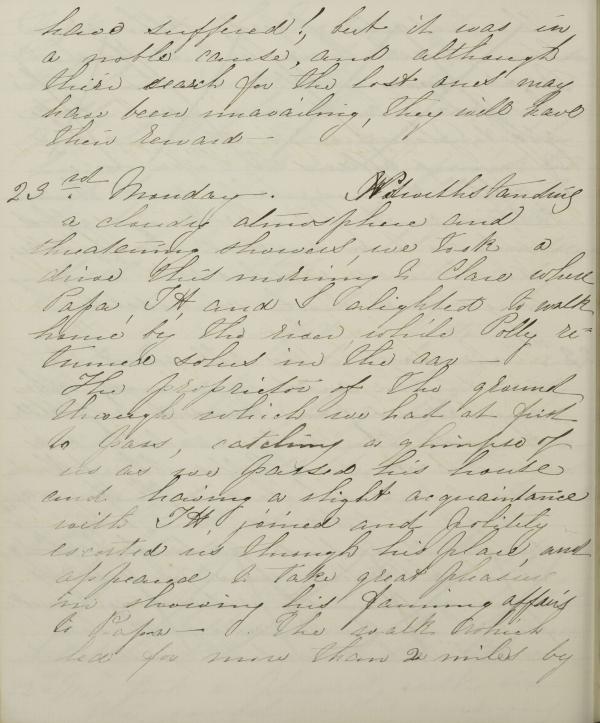 have suffered!, but it was in
a noble cause, and although
their search for the lost ones may
have been unavailing, they will have
their reward —
23rd. Monday. Notwithstanding
a cloudy atmosphere and
threatening showers, we took a
drive this morning to Clare where
Papa, TH and I alighted to walk
home by the river, while Polly re-
turned solus in the car —
The proprietor of the ground
through which we had at first
to pass, catching a glimpse of
us as we passed his house
and having a slight acquaintance
with TH joined and politely
escorted us through his place, and
appeared to take great pleasure
in showing his farming affairs
to Papa — The walk which
led for more than 2 miles by